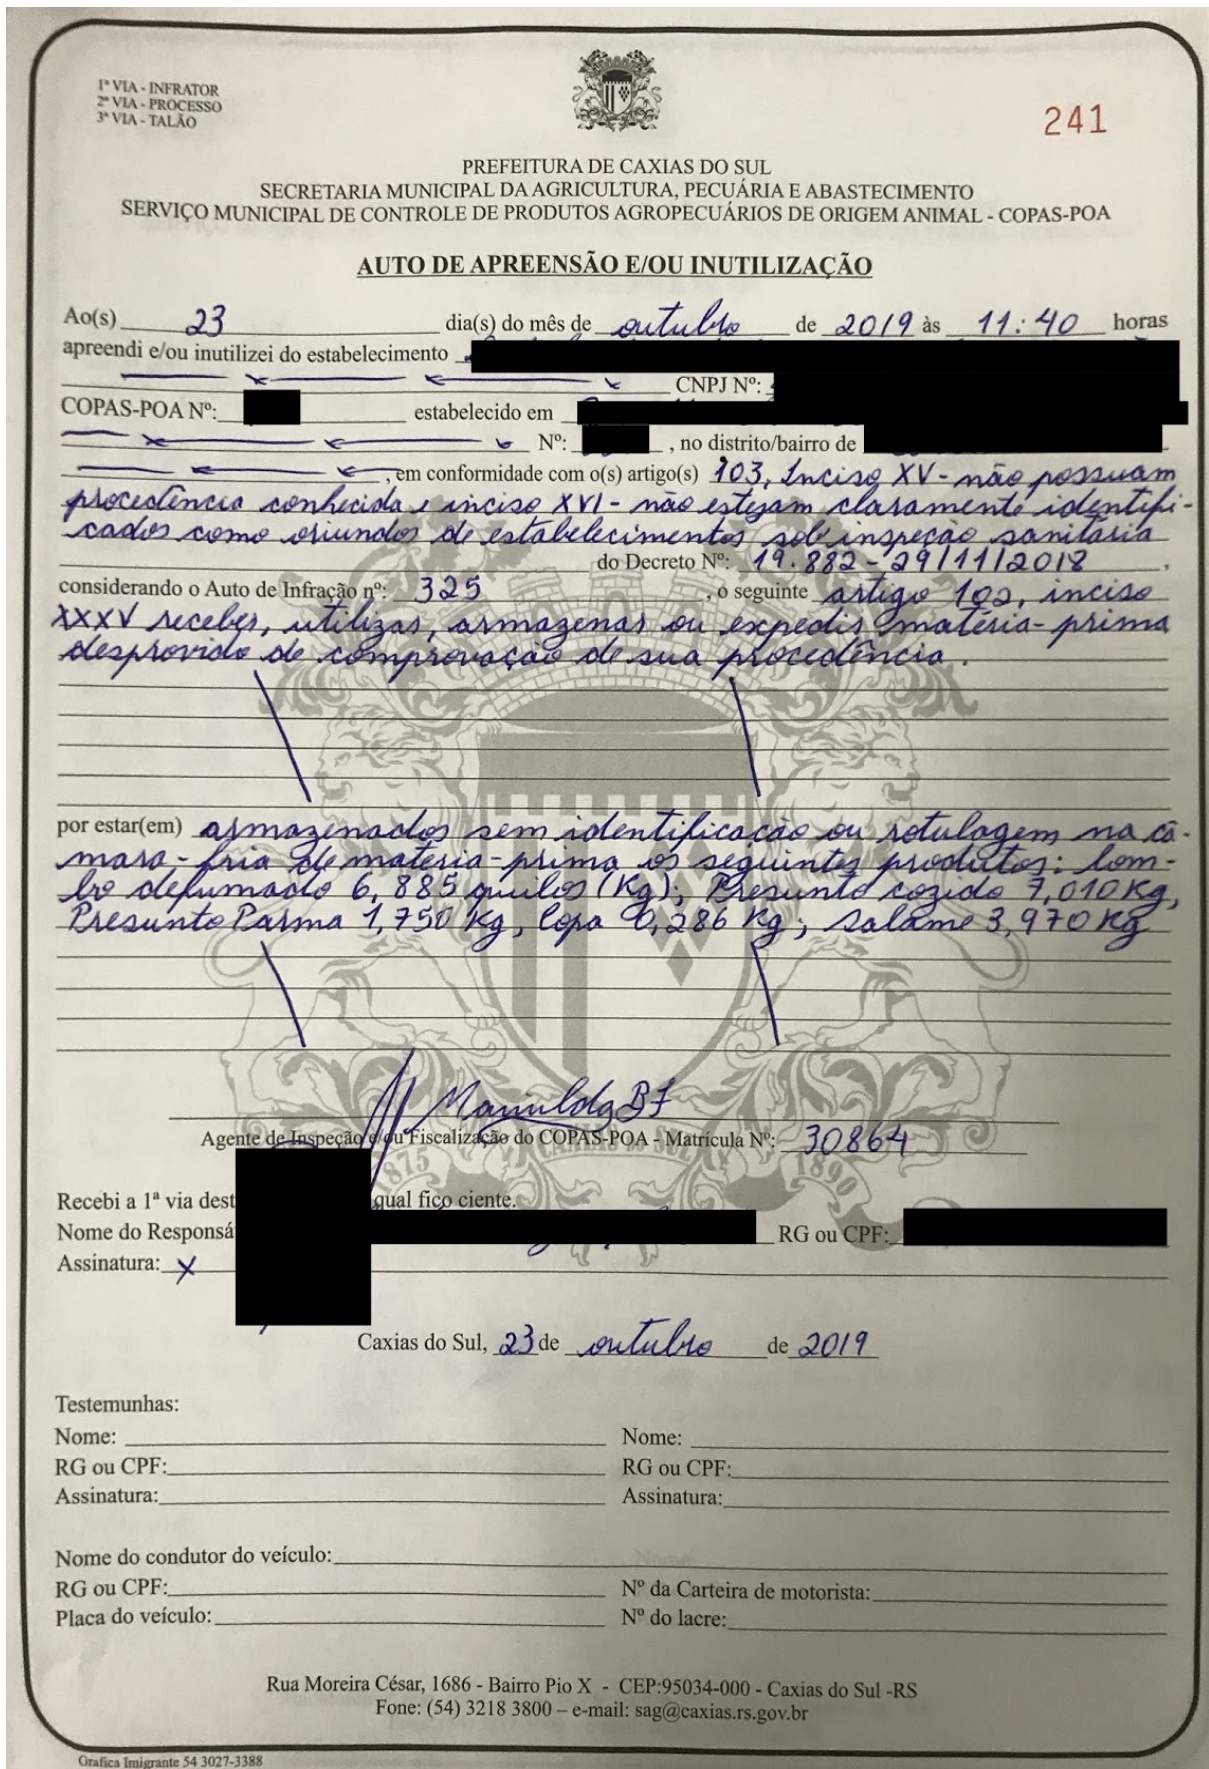 1ª VIA - INFRATOR
2ª VIA - PROCESSO
3ª VIA - TALÃO
241
PREFEITURA DE CAXIAS DO SUL
SECRETARIA MUNICIPAL DA AGRICULTURA, PECUÁRIA E ABASTECIMENTO
SERVIÇO MUNICIPAL DE CONTROLE DE PRODUTOS AGROPECUÁRIOS DE ORIGEM ANIMAL - COPAS-POA
AUTO DE APREENSÃO E/OU INUTILIZAÇÃO
Ao(s) 23 dia(s) do mês de outubro de 2019 às 11:40 horas
apreendi e/ou inutilizei do estabelecimento
CNPJ Nº:
COPAS-POA Nº: estabelecido em
Nº: , no distrito/bairro de
, em conformidade com o(s) artigo(s) 103, Inciso XV - não possuam
procedência conhecida e inciso XVI - não estejam claramente identifi-
cados como oriundos de estabelecimentos sob inspeção sanitária
do Decreto Nº: 19.882 - 29/11/2018,
considerando o Auto de Infração nº: 325, o seguinte artigo 102, inciso
XXXV receber, utilizar, armazenar ou expedir matéria-prima
desprovido de comprovação de sua procedência.
por estar(em) armazenados sem identificação ou rotulagem na câ-
mara-fria de matéria-prima os seguintes produtos: lom-
bo defumado 6,885 quilos (Kg); Presunto cozido 7,010 Kg,
Presunto Parma 1,750 Kg, Copa 0,286 Kg; salame 3,970 Kg
Agente de Inspeção e/ou Fiscalização do COPAS-POA - Matrícula Nº: 30864
CAXIAS DO SUL
1875 1890
Recebi a 1ª via dest qual fico ciente.
Nome do Responsá RG ou CPF:
Assinatura: x
Caxias do Sul, 23 de outubro de 2019
Testemunhas:
Nome: Nome:
RG ou CPF: RG ou CPF:
Assinatura: Assinatura:
Nome do condutor do veículo:
RG ou CPF: Nº da Carteira de motorista:
Placa do veículo: Nº do lacre:
Rua Moreira César, 1686 - Bairro Pio X - CEP:95034-000 - Caxias do Sul -RS
Fone: (54) 3218 3800 – e-mail: sag@caxias.rs.gov.br
Grafica Imigrante 54 3027-3388